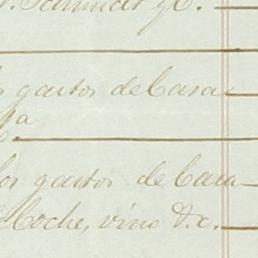 Schmidt y C.
gastos de Casa
los gastos de Casa
Coche, vino &c.